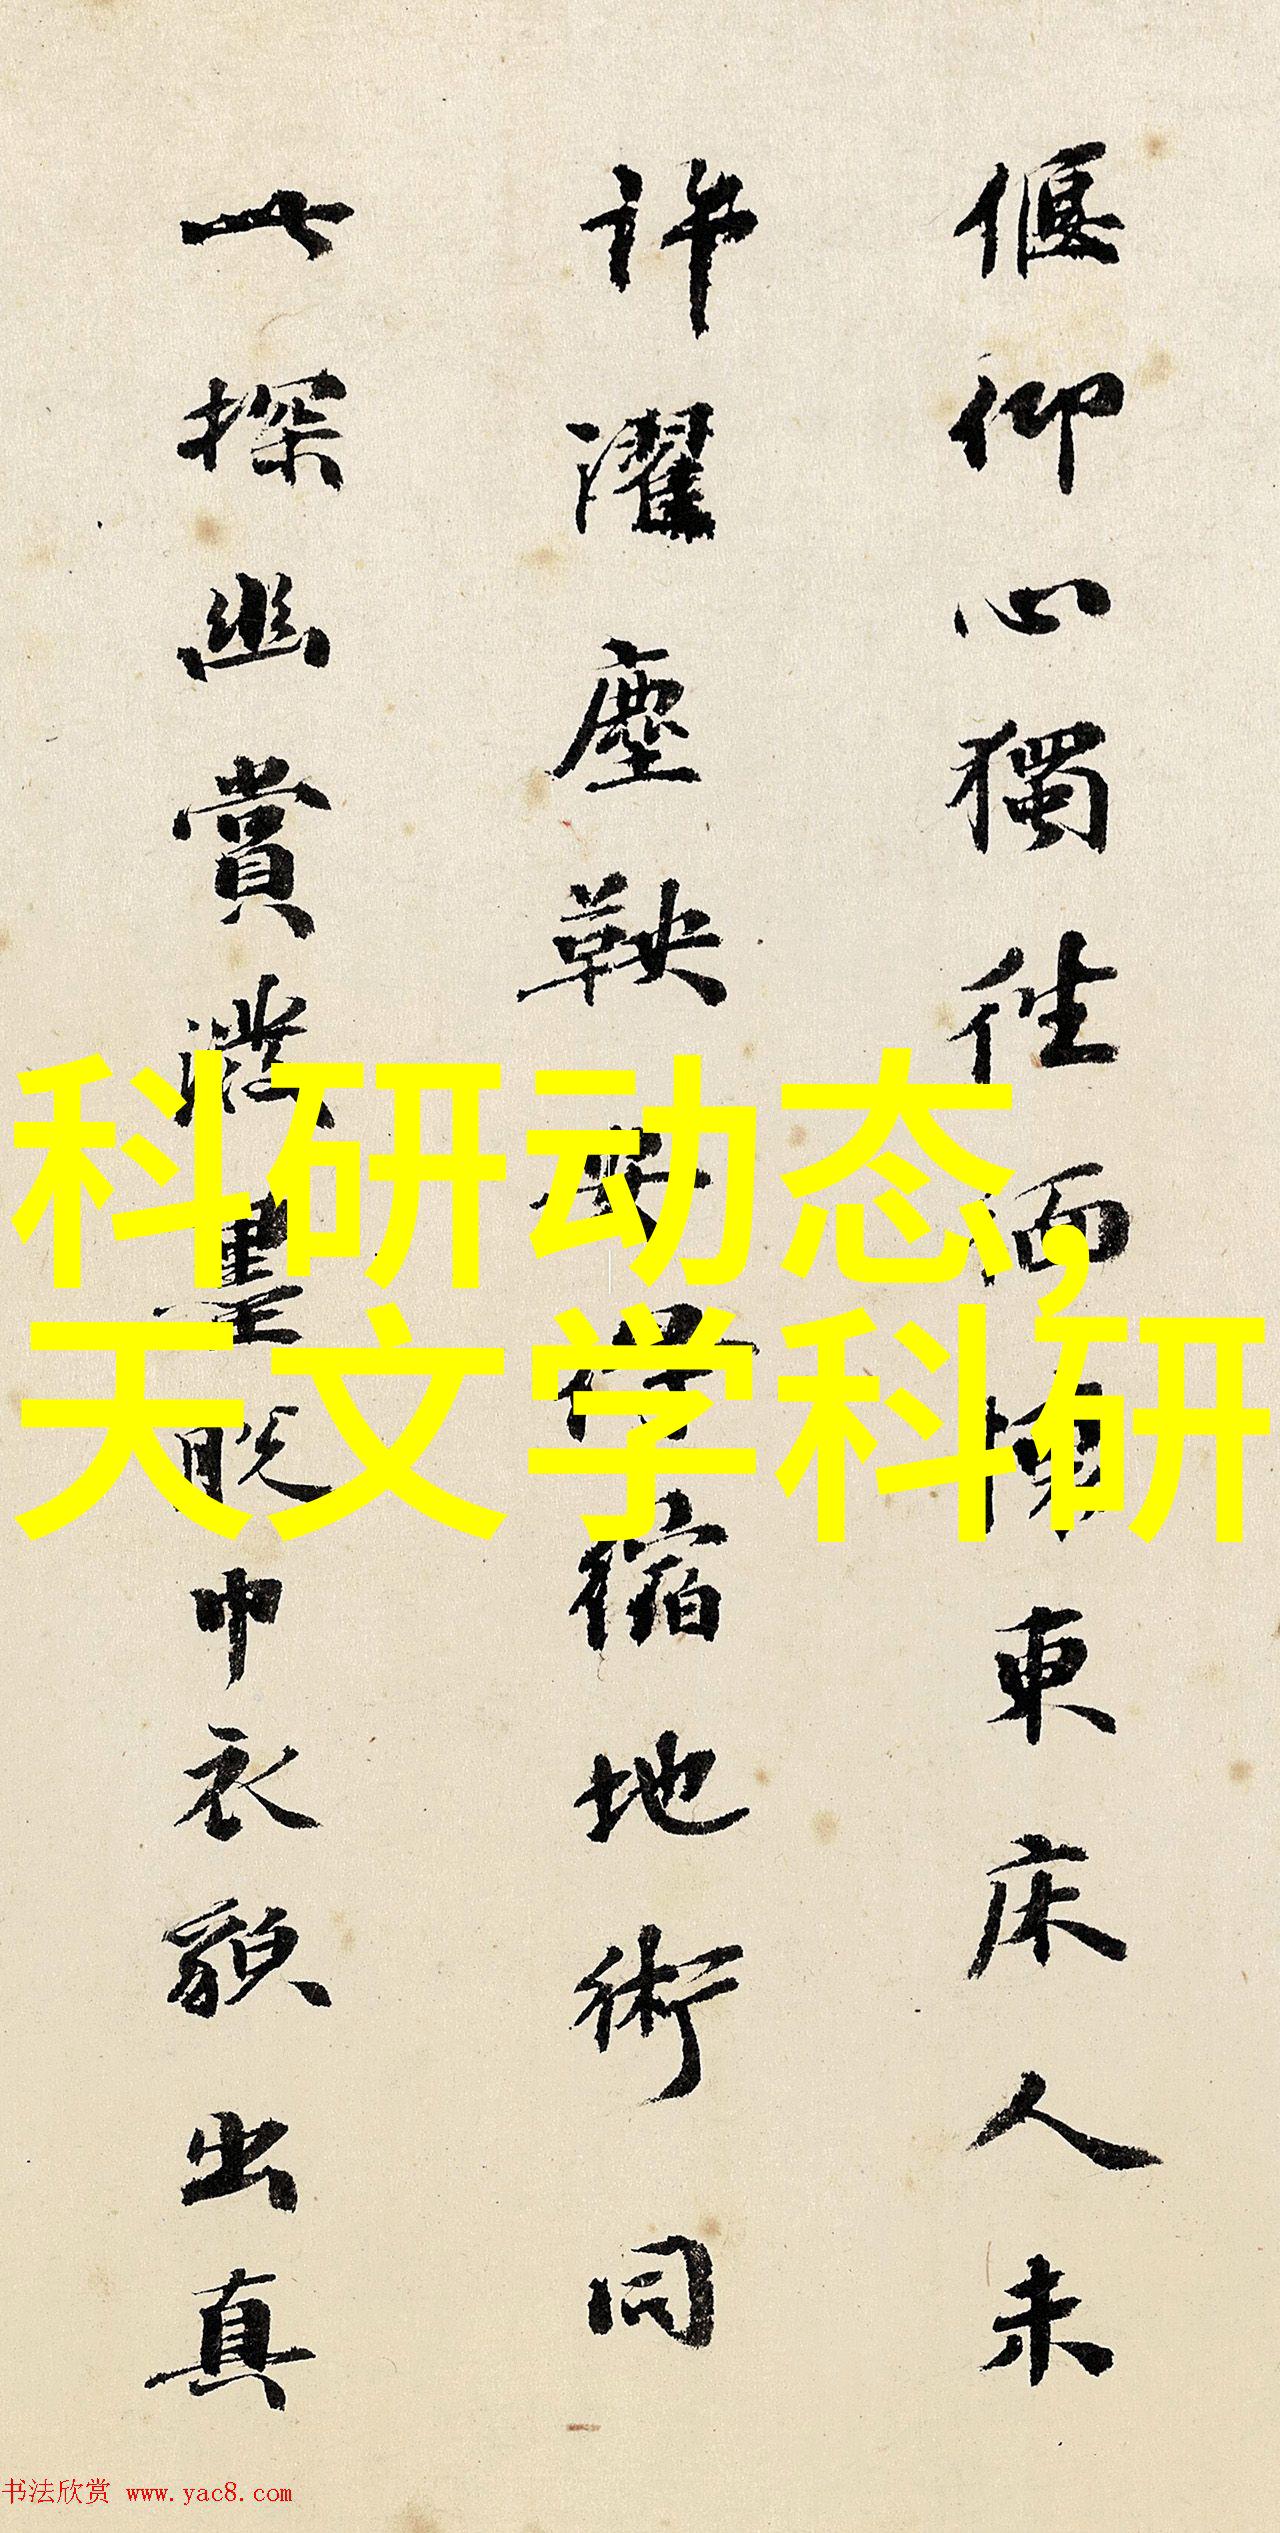 偃仰心獨往東床人未
許濯塵鞅安得縮地術同
一探幽賞潑墨脫巾衣貌出真
科研动态,
天文学科研
书法欣赏 www.yac8.com